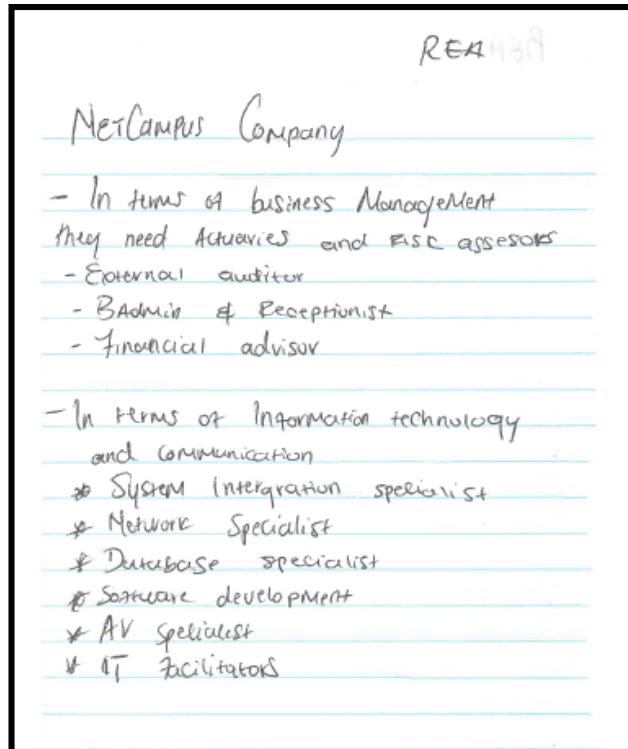 REA
NETCAMPUS Company
- In terms of business Management
they need Actuaries and RISC assesors
- External auditor
- BAdmin & Receptionist
- Financial advisor
- In terms of Information technology
and communication
* System Intergration specialist
* Network Specialist
* Database specialist
* Software development
* AV Specialist
* IT Facilitators